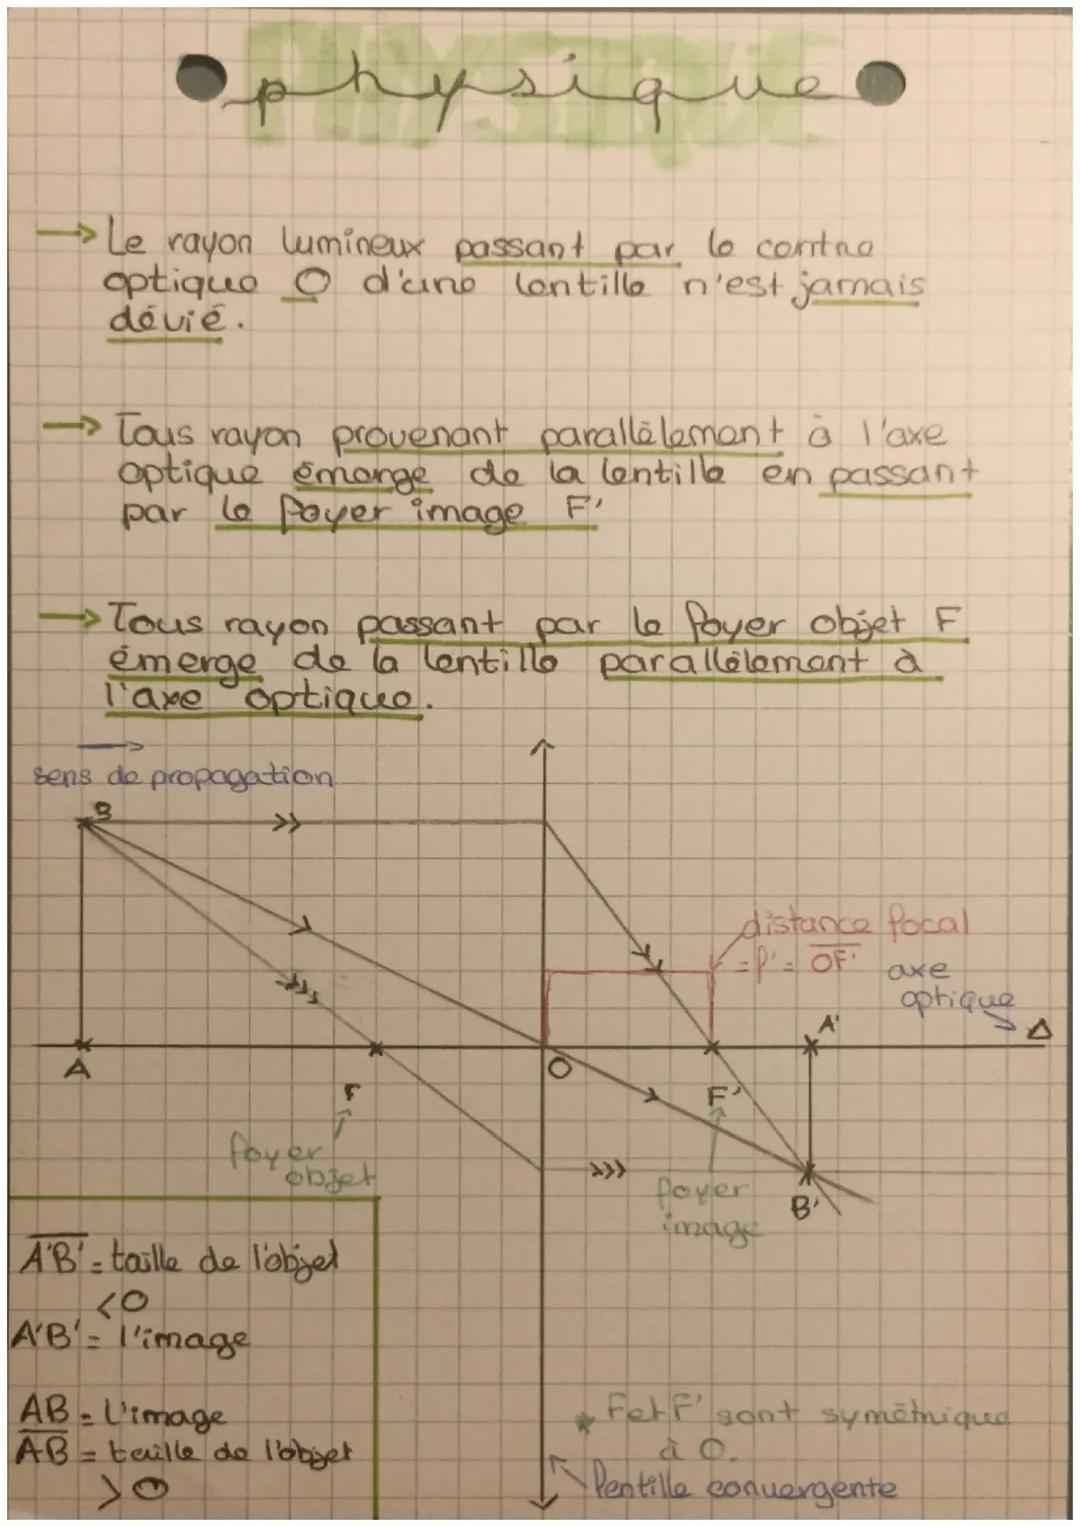 physique
→ Le rayon lumineux passant par le centre
optique O d'une lentille n'est jamais
dévié.
→ Tous rayon provenant parallèlement à l'axe
optique émerge de la lentille en passant
par le foyer image F'
→ Tous rayon passant par le foyer objet F
émerge de la lentille parallèlement à
l'axe optique.
sens de propagation
B
distance focal
= f' = OF'
axe
optique
A'
Δ
A
O
F
F'
foyer
objet
foyer
image
B'
A'B' = taille de l'objet
<0
A'B' = l'image
AB = l'image
AB = taille de l'objet
>0
* F et F' sont symétrique
à O.
lentille convergente